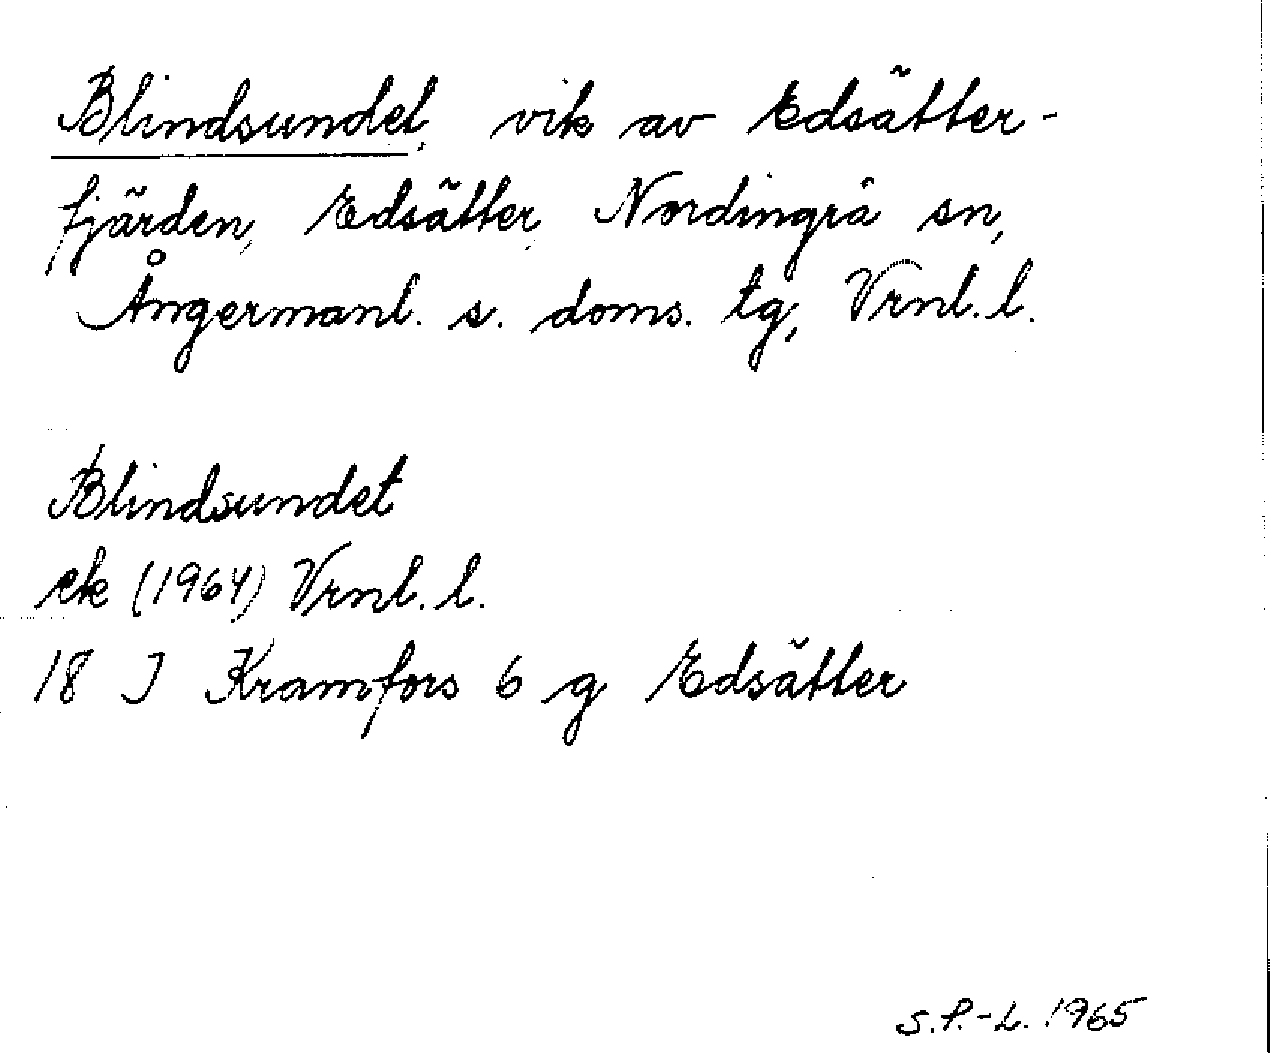 Blindsundet, vik av Edsätter-
fjärden, Edsätter, Nordingrå sn,
Ångermanl. s. doms. tg, Vrnl. l.
Blindsundet
ek (1964) Vrnl. l.
18 J Kramfors 6 g Edsätter
S.P.-L. 1965